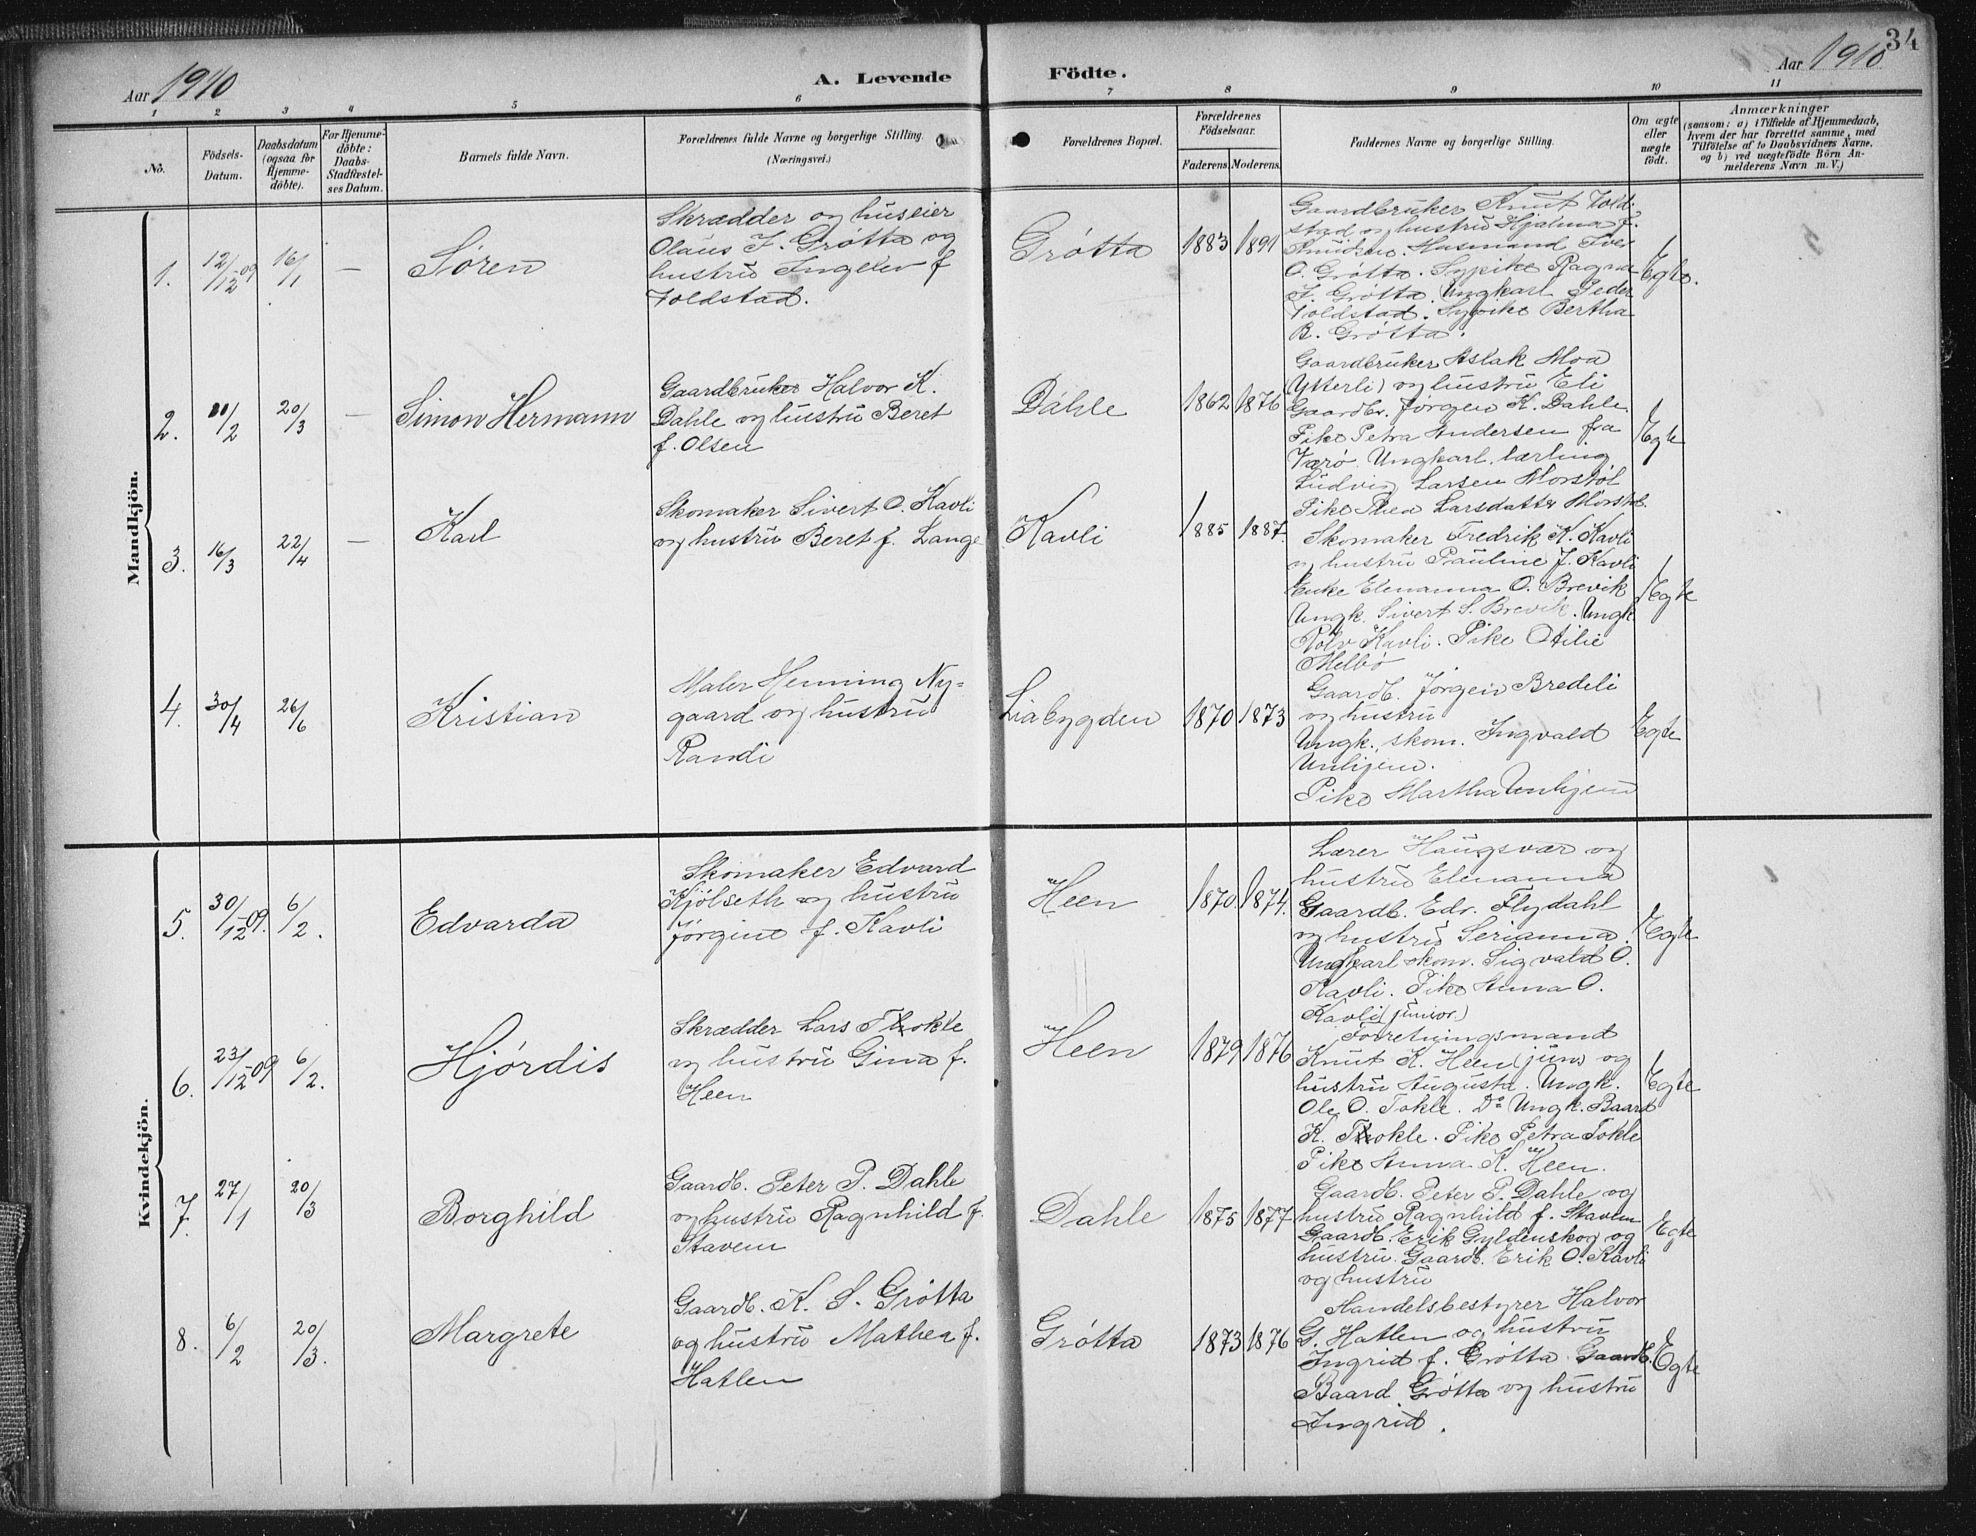 34
Aar 1910
A. Levende Födte.
Aar 1910
1 2 3 4 5 6 7 8 9 10 11
No.
Födsels-
Datum.
Daabsdatum
(ogsaa for
Hjemme-
döbte).
For Hjemme-
döbte:
Daabs-
Stadfæstel-
ses Datum.
Barnets fulde Navn.
Forældrenes fulde Navne og borgerlige Stilling.
(Næringsvei.)
Forældrenes Bopæl.
Forældrenes
Födselsaar.
Faderens. Moderens.
Faddernes Navne og borgerlige Stilling.
Om ægte
eller
uægte
födt.
Anmærkninger
(saasom: a) i Tilfælde af Hjemmedaab,
hvem der har forrettet samme, med
Tilföielse af to Daabsvidners Navne,
og b) ved uægtefödte Börn An-
melderens Navn m. V.)
Mandkjön.
1. 12/12 09 16/1 — Søren
Skrædder og huseier
Olaus J. Grøtta og
hustru Ingelev f
Voldstad.
Grøtta 1883 1891
Gaardbruker Knut Vold-
stad og hustru Hjalma f.
Knudsen. Husmand Iver
O. Grøtta. Sypike Ragna
J. Grøtta. Ungkarl Peder
Voldstad. Sypike Bertha
B. Grøtta.
Egte.
2. 11/2 20/3 — Simon Hermann
Gaardbruker Halvor K.
Dahle og hustru Beret
f. Olsen
Dahle 1862 1876
Gaardbruker Aslak Moa
(Ytterli) og hustru Eli
Gaardbr. Jørgen K. Dahle.
Pike Petra Andersen fra
Værø. Ungkarl, lærling
Ludvig Larsen Morstøl
Pike Thea Larsdatter Morstøl.
Egte
3. 16/3 22/4 — Karl
Skomaker Sivert O. Kavli
og hustru Beret f. Lange
Kavli 1885 1887.
Skomaker Fredrik K. Kavli
og hustru Pauline J. Kavli
Enke Elenanna O. Brevik
Ungk. Sivert S. Brevik. Ungk
Rolv Kavli. Pike Otilie
Melbø
Egte
4. 30/4 26/6 Kristian
Maler Henning Ny-
gaard og hustru
Randi
Liabygden 1870 1873
Gaardb. Jørgen Bredeli
og hustru
Ungk., skom. Ingvald
Unhjem.
Pike Martha Unhjem
Egte
Kvindekjön.
5. 30/12 09. 6/2. Edvarda
Skomaker Edvard
Kjølseth og hustru
Jørgine f. Kavli
Heen 1870 1874.
Lærer Haugsvær og
hustru Elenanna
Gaardb. Edv. Flydahl
og hustru Serianna.
Ungkarl skom. Sigvald O.
Kavli. Pike Anna O.
Kavli (junior.)
Egte
6. 23/12 09 6/2. Hjørdis
Skrædder Lars Thokle
og hustru Gina f.
Heen
Heen 1879 1876
Forretningsmand
Knut K. Heen (jun) og
hustru Augusta. Ungk.
Ole O. Tokle. Do Ungk. Baard
K. Thokle. Pike Petra Tokle
Pike Anna K. Heen.
Egte
7. 27/1 20/3 Borghild
Gaardb. Peter P. Dahle
og hustru Ragnhild f.
Stavem
Dahle 1875 1877
Gaardb. Peter P. Dahle og
hustru Ragnhild f. Stavem
Gaardb. Erik Gyldenskog og
hustru. Gaardb. Erik O. Kavli
og hustru
Egte
8. 6/2 20/3. Margrete
Gaardb. K. S. Grøtta
og hustru Mathea f.
Hatlen
Grøtta 1873 1876
Handelsbestyrer Halvor
G. Hatlen og hustru
Ingrid f. Grøtta Gaardb.
Baard Grøtta og hustru
Ingrid.
Egte